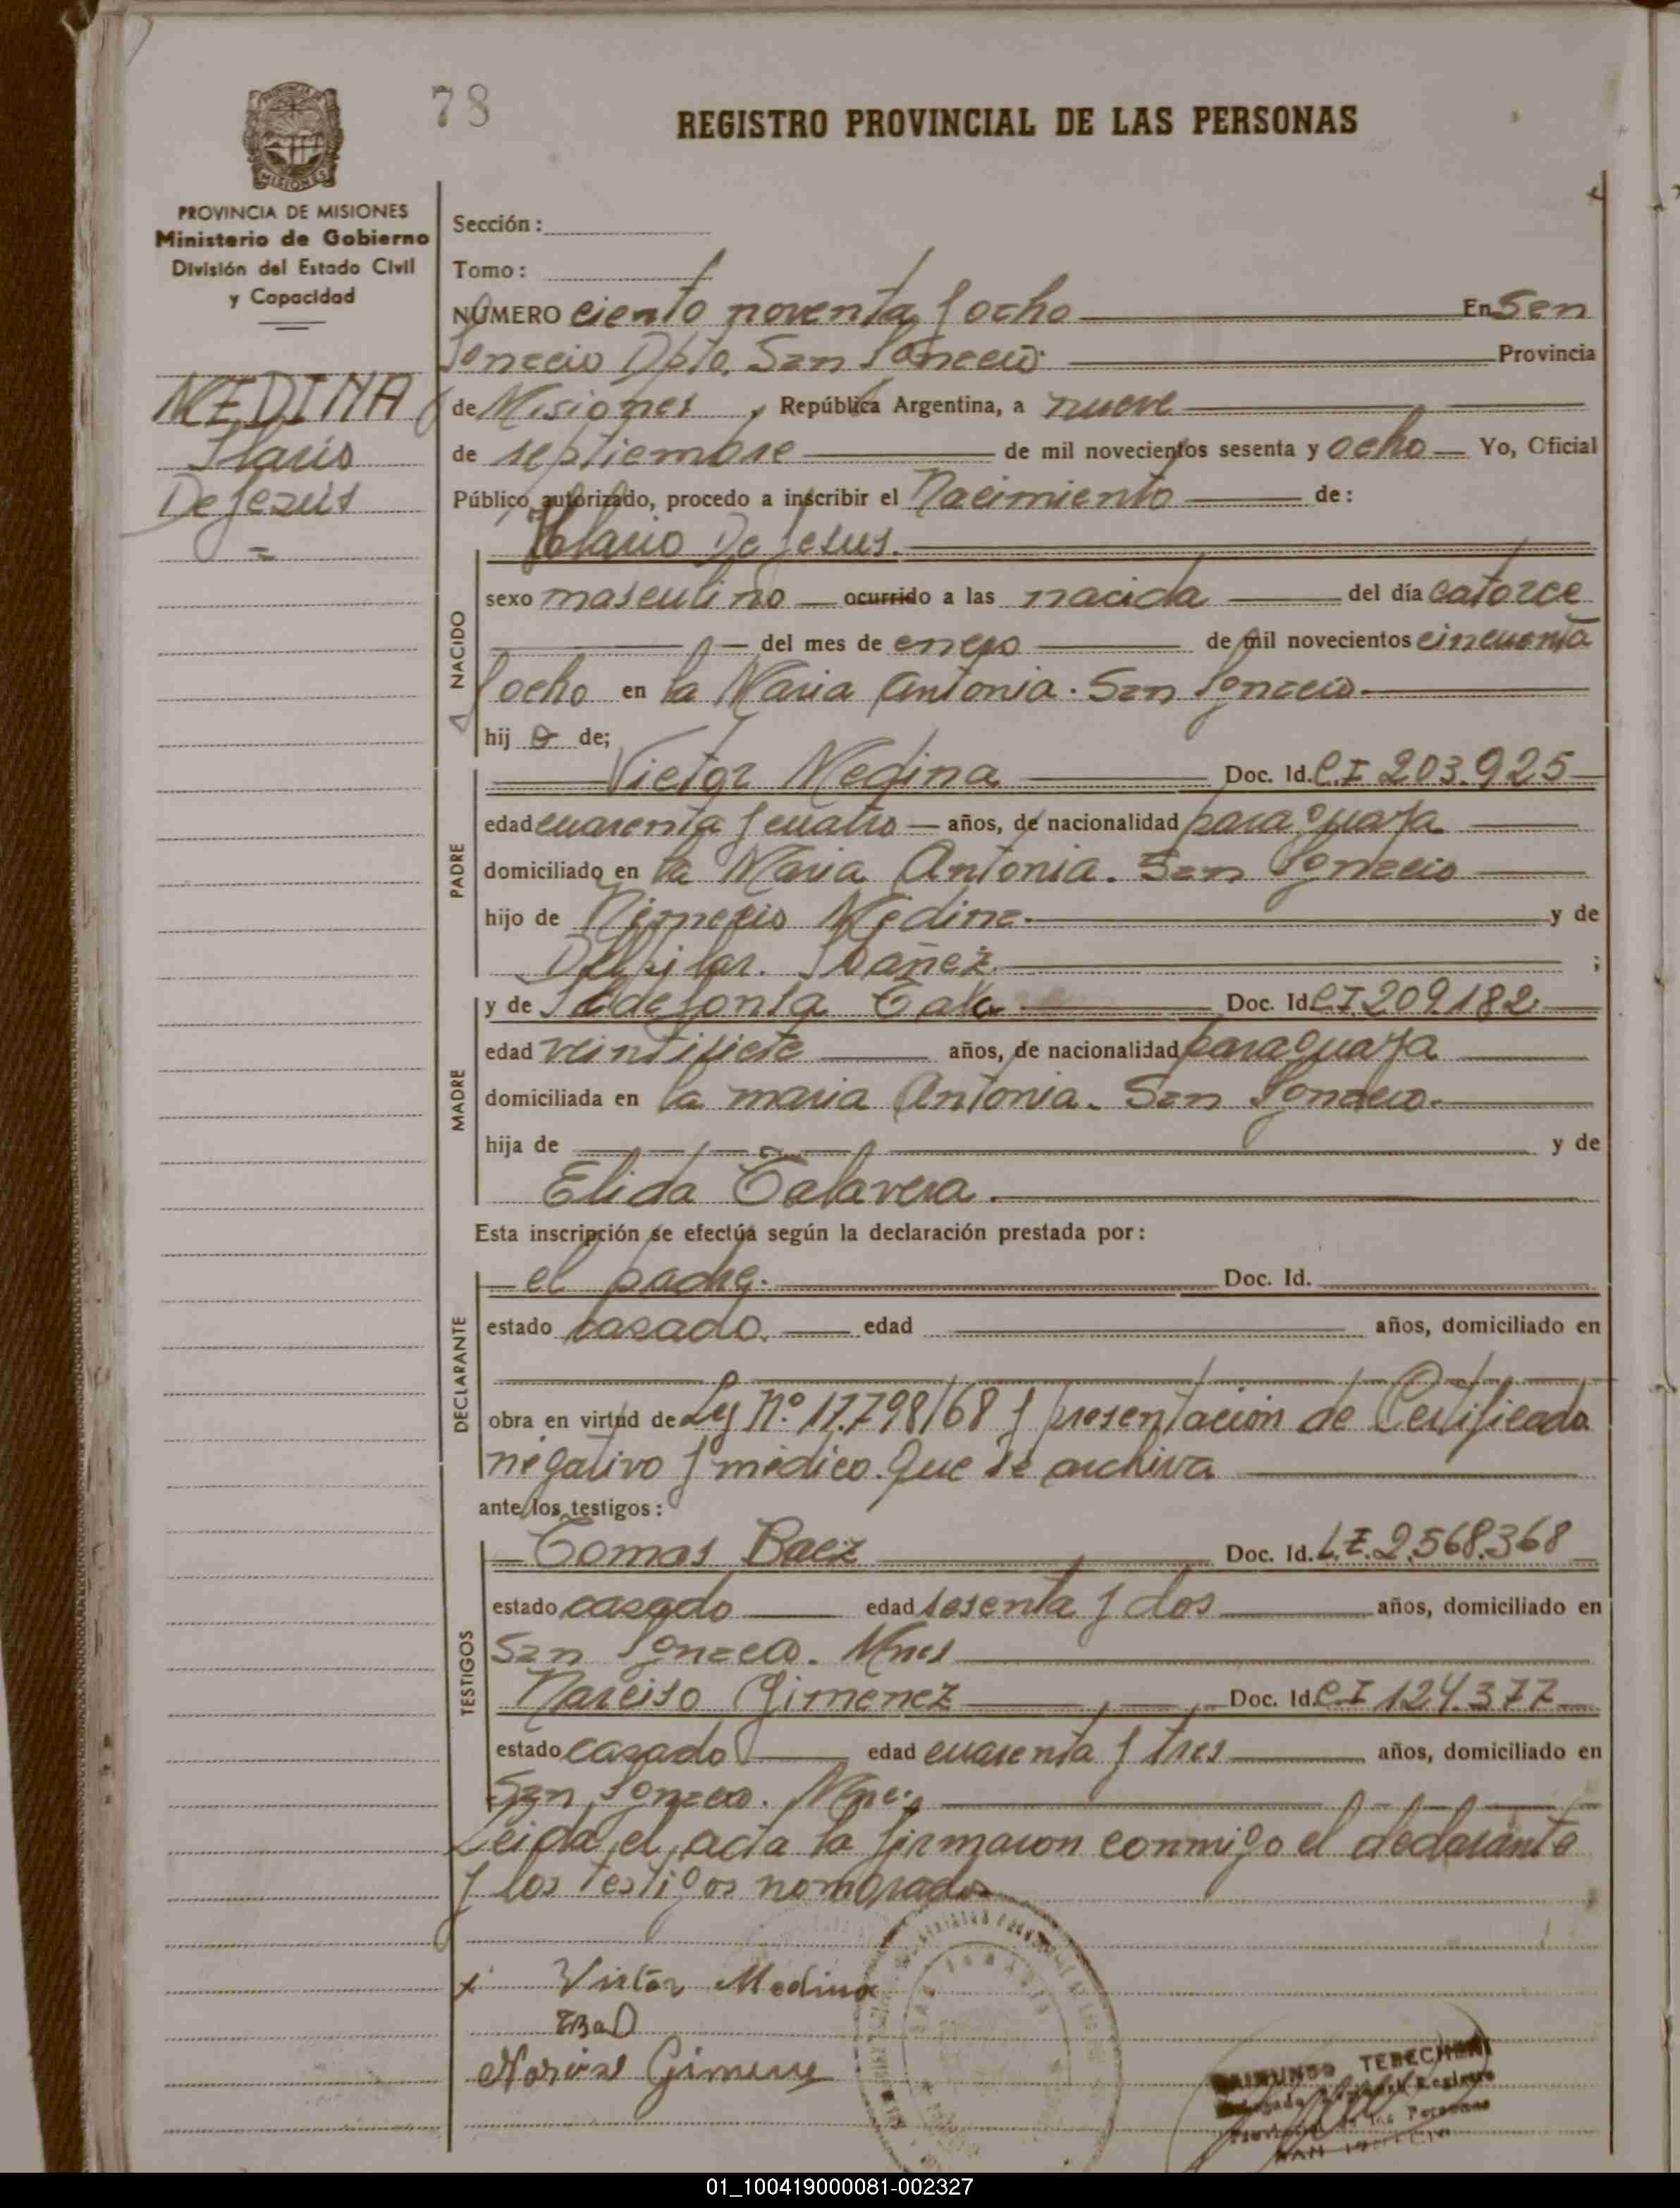 78
REGISTRO PROVINCIAL DE LAS PERSONAS
MISIONES
PROVINCIA DE MISIONES
Ministerio de Gobierno
División del Estado Civil
y Capacidad
MEDINA
Ilario
De Jezús
Sección:
Tomo:
NÚMERO ciento noventa y ocho En San
Ignacio Dpto. San Ignacio Provincia
de Misiones, República Argentina, a nueve
de septiembre de mil novecientos sesenta y ocho Yo, Oficial
Público autorizado, procedo a inscribir el Nacimiento de:
De Jesus.
NACIDO
sexo masculino ocurrido a las nacida del día catorce
del mes de enero de mil novecientos cincuenta
y ocho en la Maria Antonia. San Ignacio
hij o de;
PADRE
Victor Medina Doc. Id. C.I 203.925
edad cuarenta y cuatro años, de nacionalidad paraguaya
domiciliado en la Maria Antonia. San Ignacio
hijo de Medina y de
Del pilar. Ibañez ;
MADRE
y de Ildefonsa Doc. Id. C.I 209.182
edad veintisiete años, de nacionalidad paraguaya
domiciliada en la maria Antonia. San Ignacio.
hija de y de
Elida Talavera.
Esta inscripción se efectúa según la declaración prestada por:
DECLARANTE
el padre. Doc. Id.
estado casado. edad años, domiciliado en
obra en virtud de Ley Nº 17.798/68 y presentación de Certificado
negativo y médico. que se archiva
ante los testigos:
TESTIGOS
Tomas Baez Doc. Id. L.E. 2.568.368
estado casado edad sesenta y dos años, domiciliado en
San Ignacio. Mnes
Narciso Gimenez Doc. Id. C.I 124.377
estado casado edad cuarenta y tres años, domiciliado en
San Ignacio. Mnes.
Leida el acta la firmaron conmigo el declarante
y los testigos nombrados
x Victor Medina
Gimene
TERECHEN
SAN IGNACIO
01_100419000081-002327